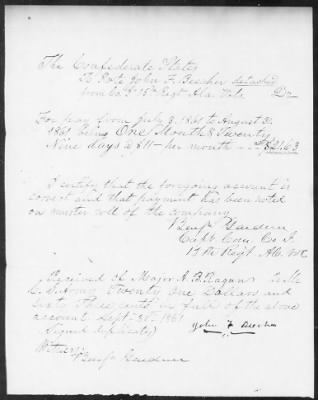 The Confederate States
To Priv John F. Beecher detached
from Co. I 15th Regt Ala Vols Dr
For pay from July 3. 1861 to August 31.
1861 being One Month & Twenty
Nine days @ $11 — per month — $21.63
I certify that the foregoing account is
correct and that payment has been noted
on muster roll of the company
Benj Gardner
Capt Com. Co I.
15th Regt Ala. Vol
Received of Major H. B. Ragan
Twenty One Dollars and
sixty three cents in full of the above
account Sept. 1861
Signed duplicate) John F Beecher
Witness
Benj Gardner